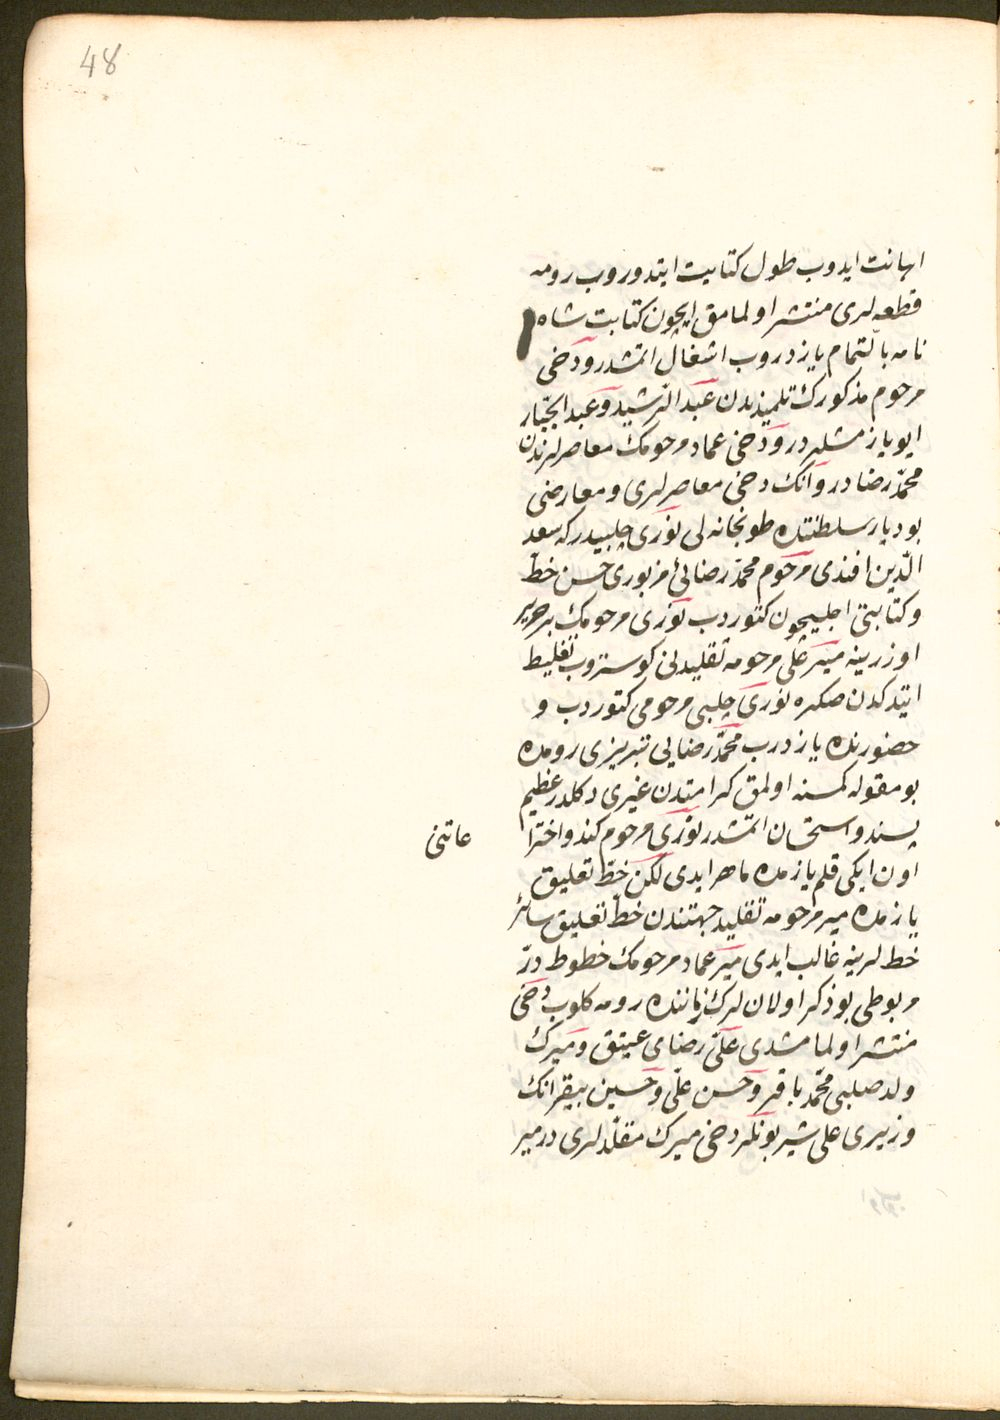 48
اهانت ایدوب طول کتابیت ایتدوروب رومه
قطعه لری منتشر اولمامق ایچون کتابت شاه
نامه بالتمام یازدروب اشغال اتمشدر ودخی
مرحوم مذکورك تلمیذیدن عبد الرشید وعبد الجبّار
ایو یازمشلردر ودخی عماد مرحومك معاصرلرندن
محمّد رضادر وانك دخی معاصرلری ومعارضی
بو دیار سلطنتده طوبخانه لی نوری چلبیدر که سعد
الدّین افندی مرحوم محمّد رضائیٔ مزبوری حسن خطّ
وکتابتی اجلیچون کتوردب نوری مرحومك بر
اوزرینه میر علی مرحومه تقلیدنی کوستروب تغلیط
ایتدکدن صکره نوری چلبی مرحومی کتوردب و
حضورنده یازدرب محمّد رضایی تبریزی رومده
بو مقوله کمسنه اولمق کرامتدن غیری دکلدر عظیم
پسند واستحسان اتمشدر نوری مرحوم کندو اختراعاتنی
اون ایکی قلم یازمده ماهر ایدی لکن خطّ تعلیق
یازمده میر مرحومه تقلید جهتندن خطّ تعلیق سائر
خط لرینه غالب ایدی میر عماد مرحومك خطوط درّ
مربوطی بو ذکر اولان لرك زماننده رومه کلوب دخی
منتشر اولمامشدی علی رضای عتیق ومیرك
ولد صلبی محمّد باقر وحسن علی وحسین بیقرانك
وزیری علی شیر بونلر دخی میرك مقلّدلری در میر